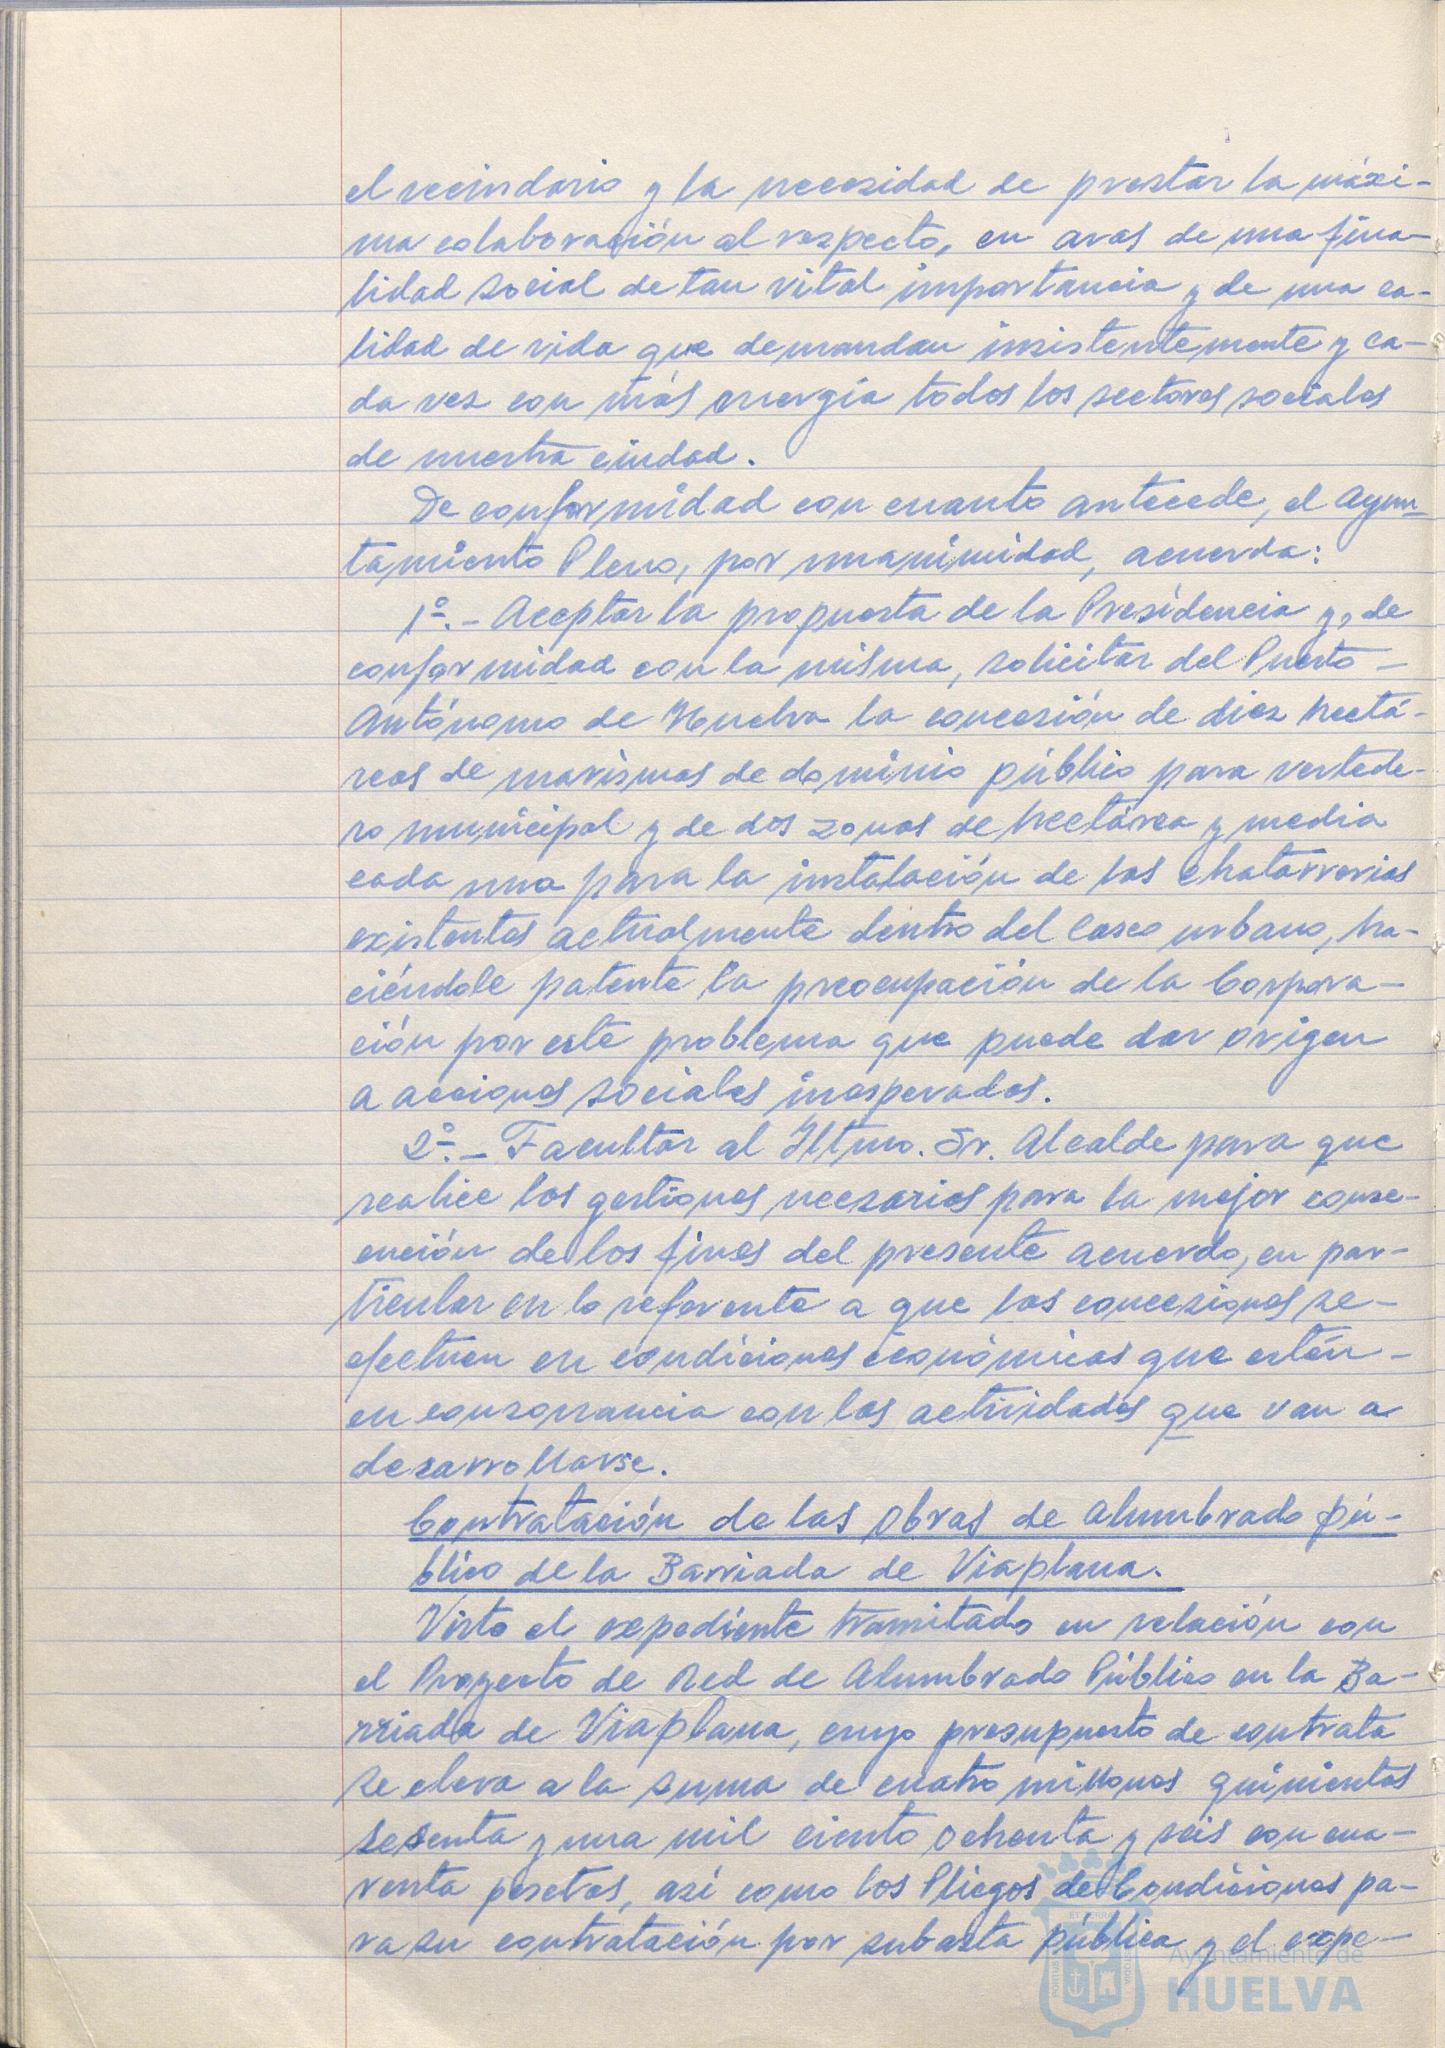 el vecindario y la necesidad de prestar la máxi-
ma colaboración al respecto, en aras de una fina-
lidad social de tan vital importancia y de una ca-
lidad de vida que demandan insistentemente y ca-
da vez con más energía todos los sectores sociales
de nuestra ciudad.
De conformidad con cuanto antecede, el Ayun-
tamiento Pleno, por unanimidad, acuerda:
1º.- Aceptar la propuesta de la Presidencia y, de
conformidad con la misma, solicitar del Puerto-
Autónomo de Huelva la concesión de diez hectá-
reas de marismas de dominio público para vertede-
ro municipal y de dos zonas de hectárea y media
cada una para la instalación de las chatarrerias
existentes actualmente dentro del casco urbano, ha-
ciéndole patente la preocupación de la Corpora-
ción por este problema que puede dar origen
a acciones sociales inesperadas.
2º.- Facultar al Iltmo. Sr. Alcalde para que
realice las gestiones necesarias para la mejor conse-
cución de los fines del presente acuerdo, en par-
ticular en lo referente a que las concesiones se-
efectuen en condiciones económicas que estén-
en consonancia con las actividades que van a
desarrollarse.
Contratación de las obras de alumbrado pú-
blico de la Barriada de Viaplana.
Visto el expediente tramitado en relación con
el Proyecto de Red de Alumbrado Público en la Ba-
rriada de Viaplana, cuyo presupuesto de contrata
se eleva a la suma de cuatro millones quinientas
sesenta y una mil ciento ochenta y seis con cua-
renta pesetas, así como los Pliegos de Condiciones pa-
ra su contratación por subasta pública y el expe-
Ayuntamiento de
HUELVA